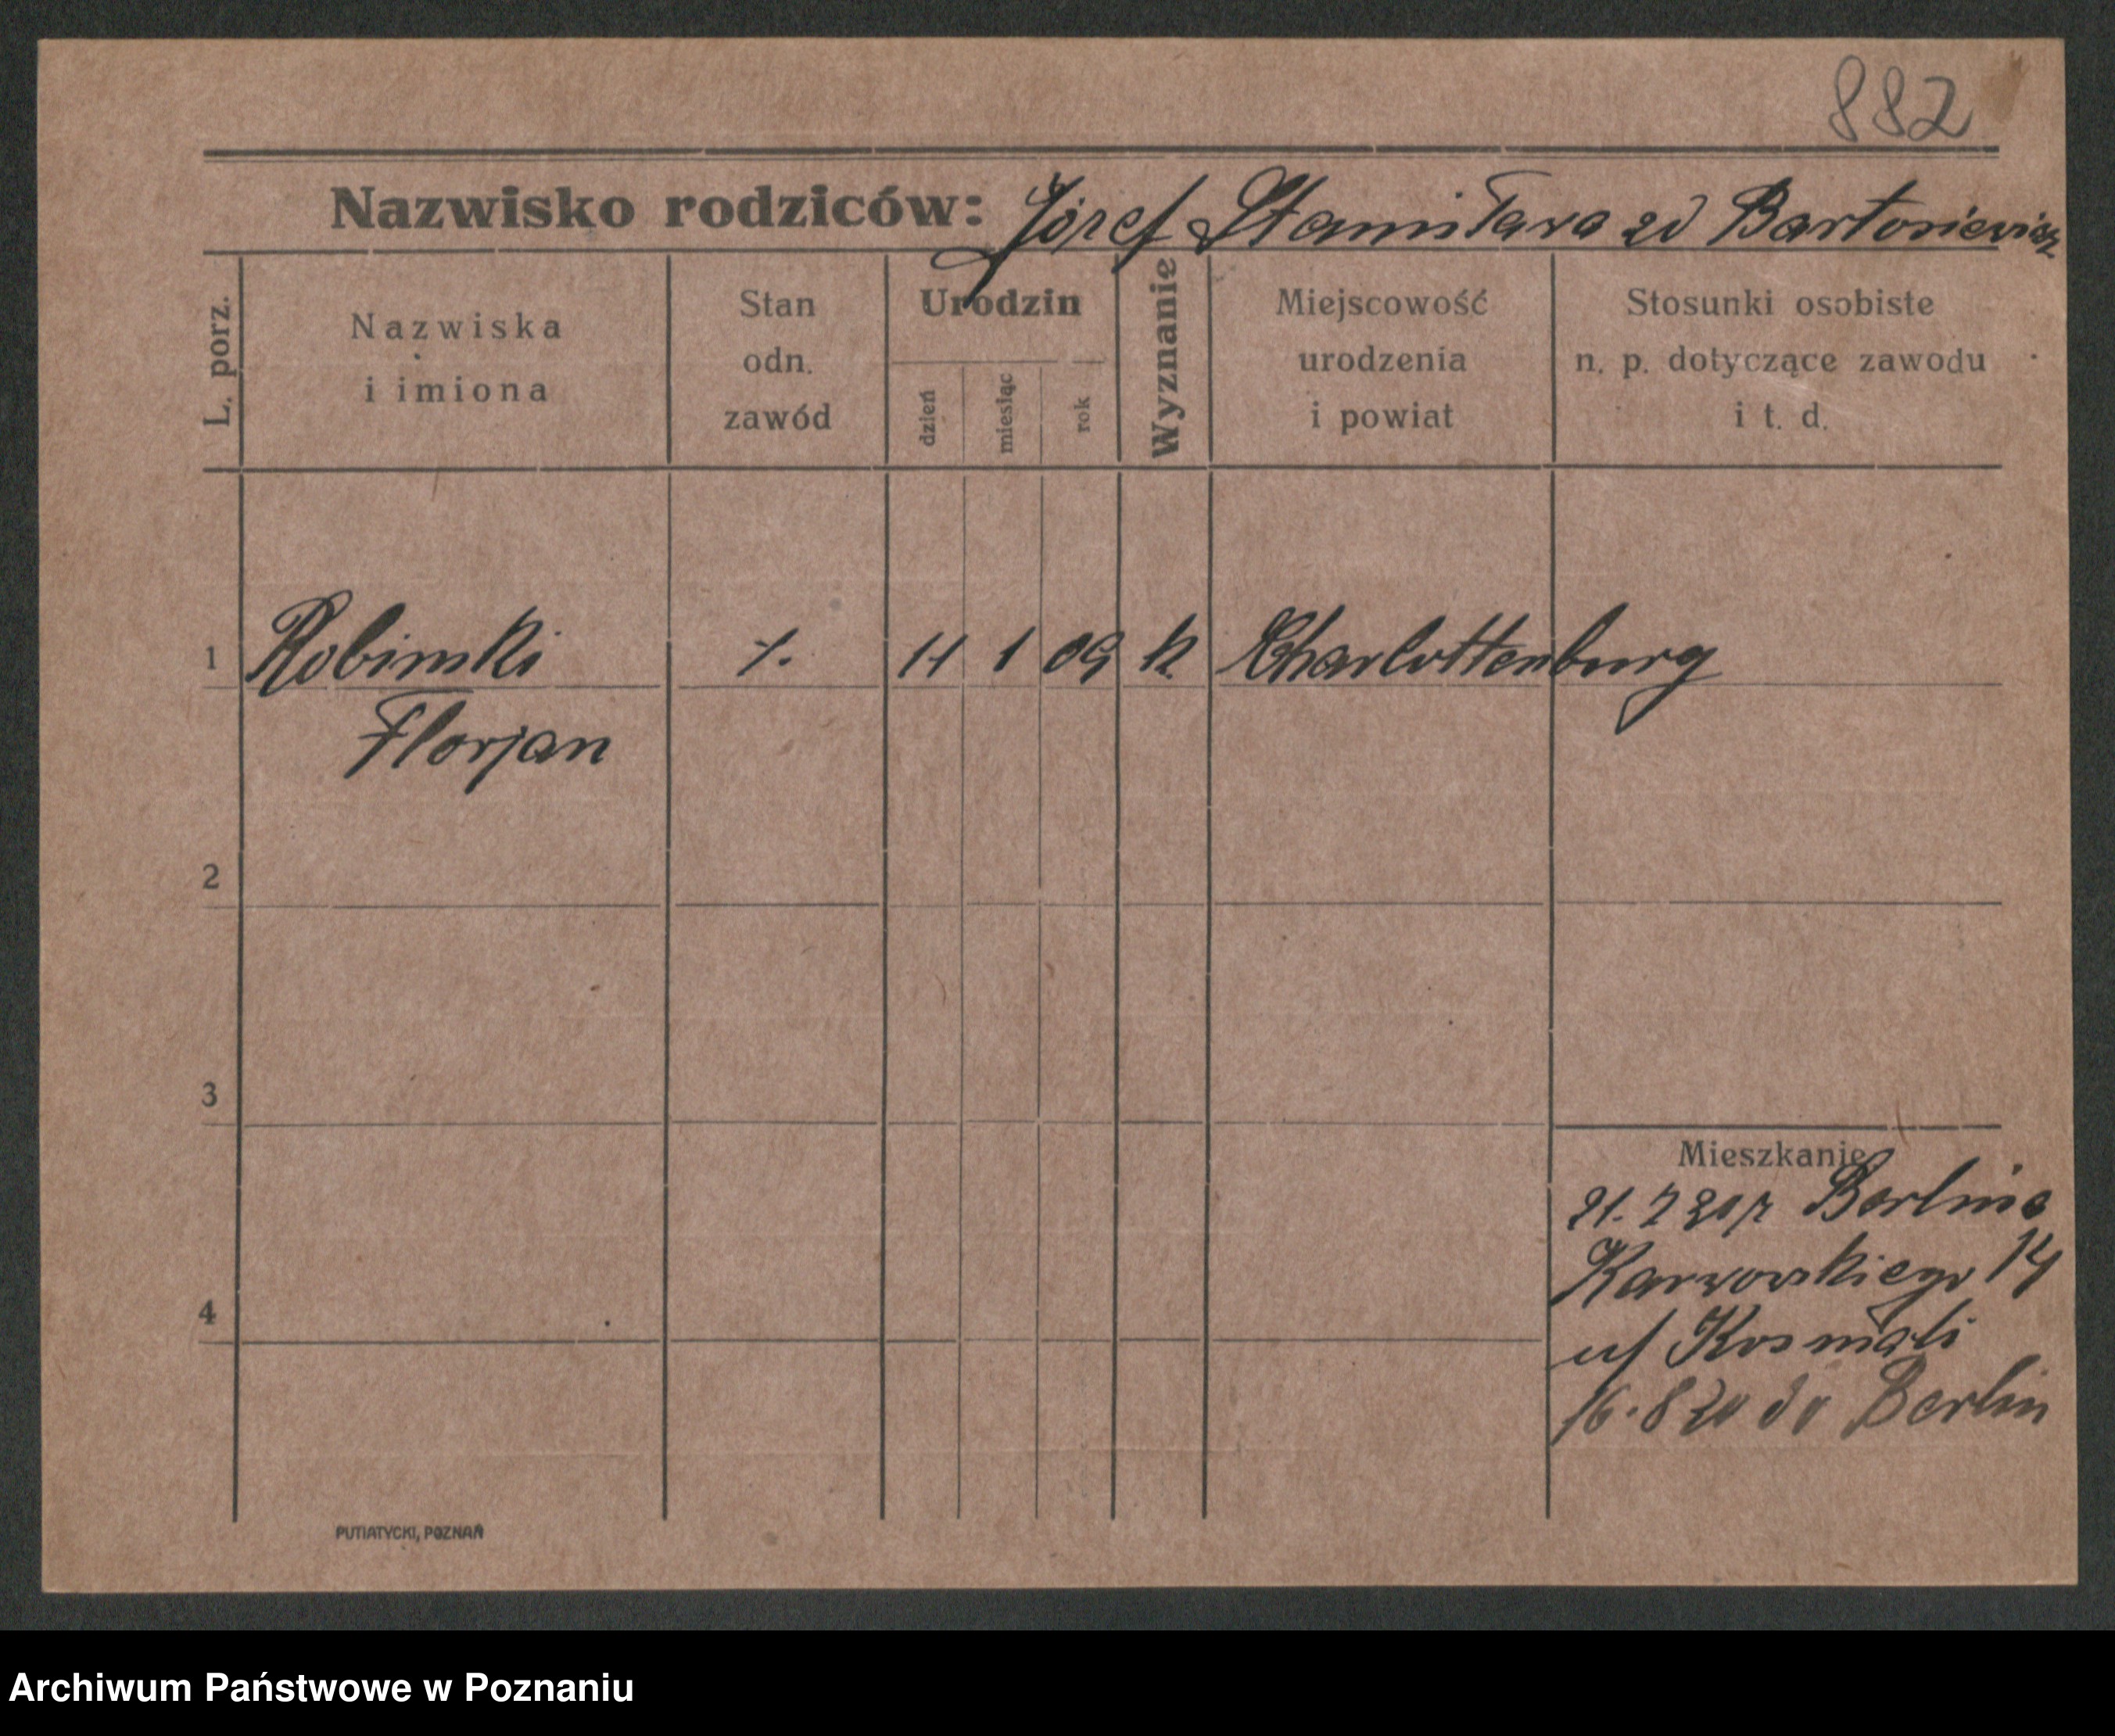 882
Nazwisko rodziców: Józef Stanisława zd Bartosiewicz
L. porz.
Nazwiska
i imiona
Stan
odn.
zawód
Urodzin
dzień
miesiąc
rok
Wyznanie
Miejscowość
urodzenia
i powiat
Stosunki osobiste
n. p. dotyczące zawodu
i t. d.
1 Robinski 1 09 k. Charlottenburg
Florjan
2
3
4
Mieszkanie
21. 7 20 z Berlina
Karwowskiego 14
u/ Kosmali
16. 8 20 do Berlin
PUTIATYCKI, POZNAŃ
Archiwum Państwowe w Poznaniu